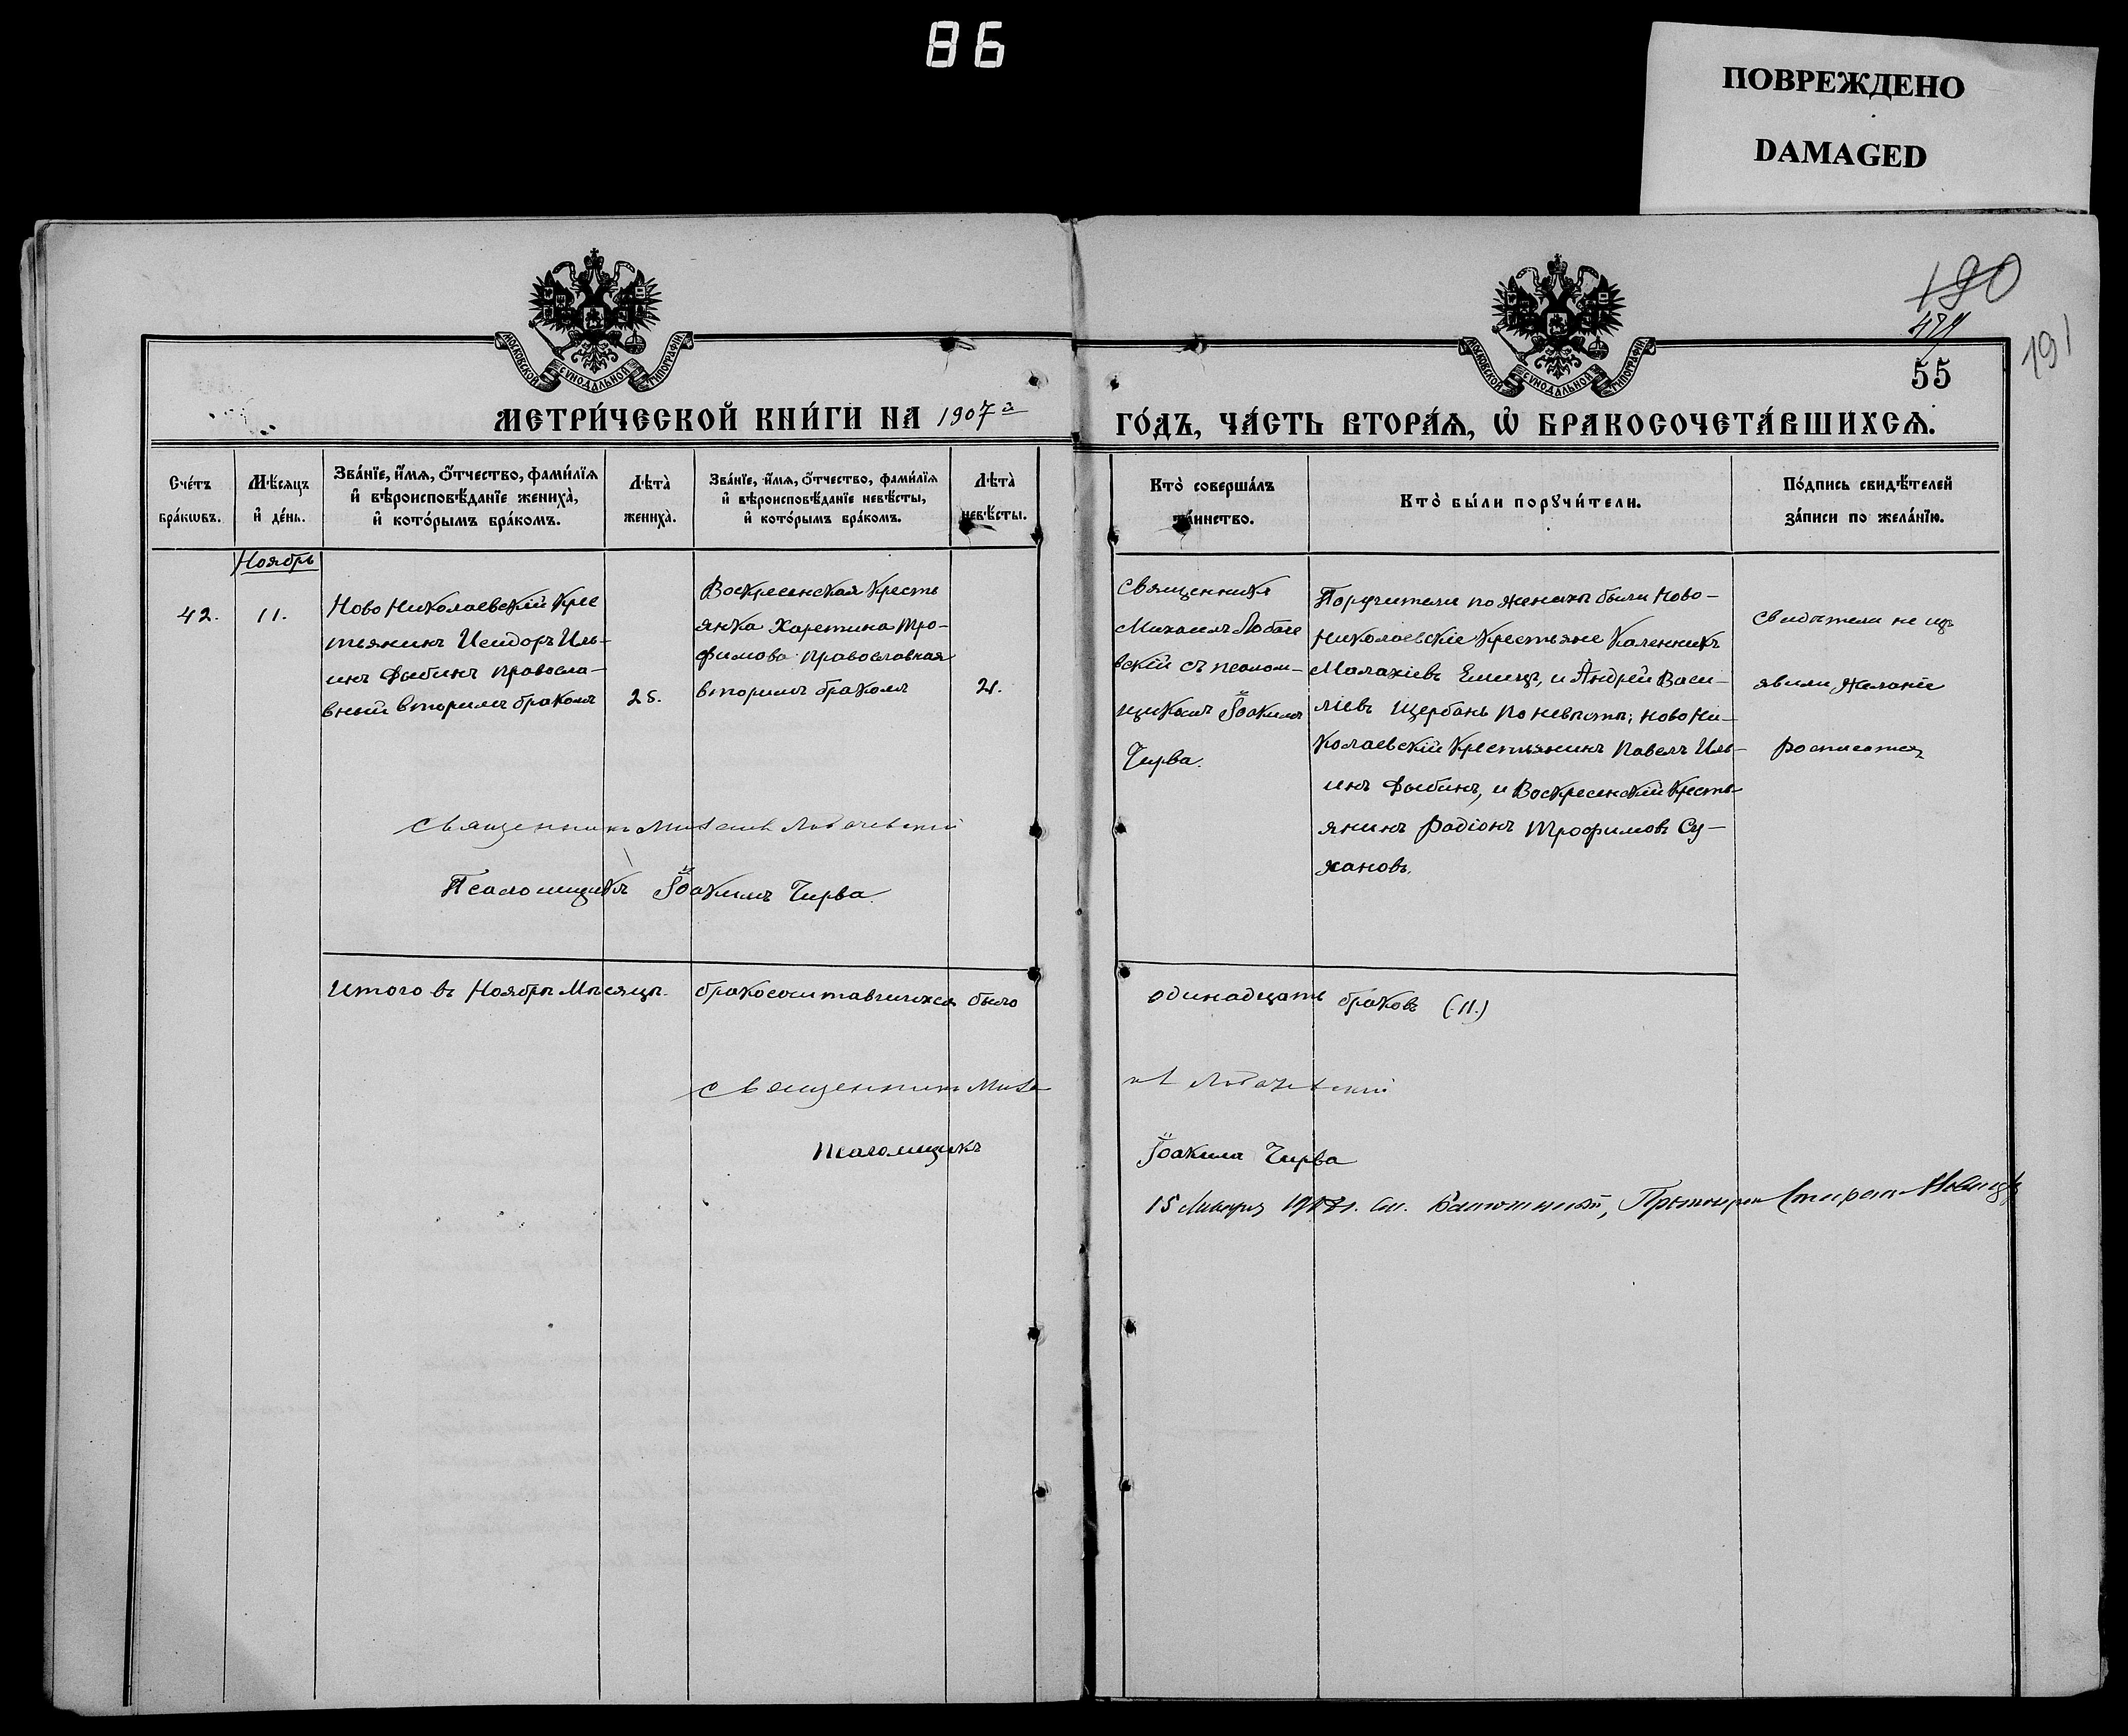 86
ПОВРЕЖДЕНО
DAMAGED
190
191
МОСКОВСКОЙ СѴНОДАЛЬНОЙ ТИПОГРАФІИ
МОСКОВСКОЙ СѴНОДАЛЬНОЙ ТИПОГРАФІИ
55
МЕТРИ́ЧЕСКОЙ КНИ́ГИ НА 1907 й
ГО́ДЪ, ЧА́СТЬ ВТОРА́Я, Ѿ БРАКОСОЧЕТА́ВШИХСЯ.
Сче́тъ бра́кωвъ.
Мѣ́сяцъ и҆ де́нь.
Зва́нїе, и҆́мя, ѻ҆́тчество, фами́лїя и҆ вѣроисповѣ́данїе жениха̀, и҆ кото́рымъ бра́комъ.
Лѣ́та̀ жениха̀.
Зва́нїе, и҆́мя, ѻ҆́тчество, фами́лїя и҆ вѣроисповѣ́данїе невѣ́сты, и҆ кото́рымъ бра́комъ.
Лѣ́та̀ невѣ́сты.
Кто̀ соверша́лъ та́инство.
Кто̀ бы́ли порꙋчи́тели.
По́дпись свидѣ́телей за́писи по жела́нїю.
Ноябрь
42.
11.
Ново Николаевскій Крес
тьянинъ Исидоръ Иль-
инъ Фыбинъ правосла-
вный вторымъ бракомъ
25.
Воскресенская Кресть
янка Харетина Тро-
фимова православная
вторымъ бракомъ
21.
Священникъ
Михаилъ Лобаче
вскій съ псалом-
щикомъ Іоакимъ
Чирва.
Поручители по женихѣ были Ново-
николаевскіе Крестьяне Каленникъ
Малахіевъ Емецъ, и Андрей Васи-
ліевъ Щербань по невѣстѣ; Ново Ни-
колаевскій Крестьянинъ Павелъ Иль-
инъ Фыбинъ, и Воскресенскій Кресть-
янинъ Радіонъ Трофимовъ Су-
хановъ.
Свидѣтели не изъ
явили желаніе
росписатся
Священникъ Михаилъ Лобачевскій
Псаломщикъ Іоакимъ Чирва.
Итого въ Ноябрѣ Мѣсяцѣ бракосочитавшихся было одинадцать браковъ (11.)
Священникъ Михаилъ Лобачевскій
Псаломщикъ Іоакимъ Чирва
15 Января